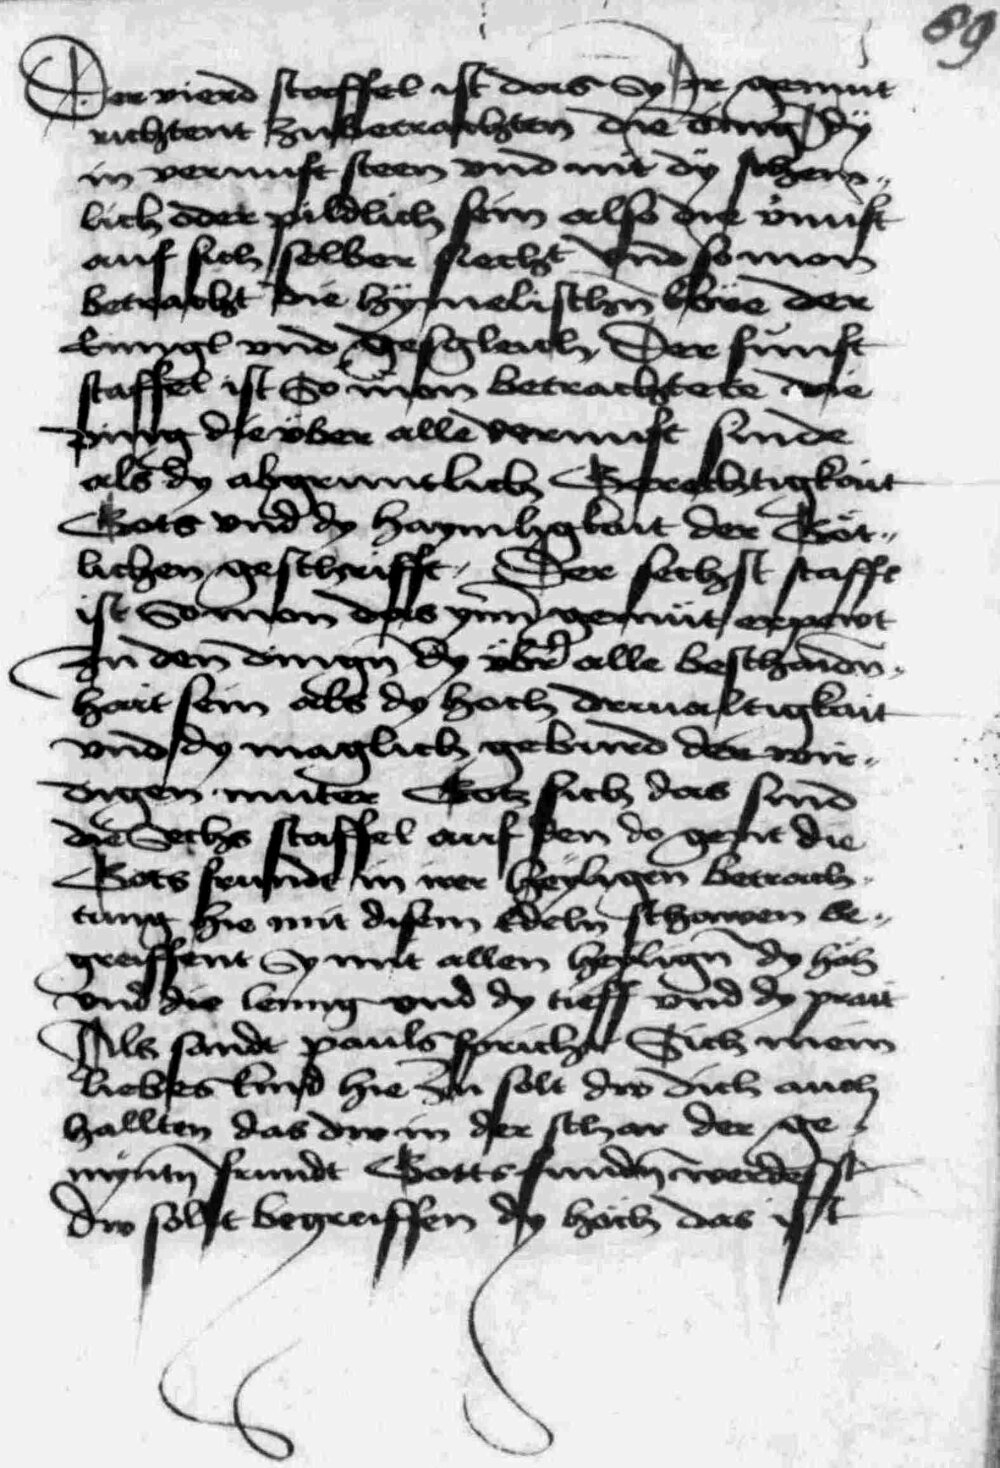 89
Der vierd staffel ist das Sy Ir gemüt
richtent zubetrachten die ding dy
in vernunft steen vnd nit dy schein„
lich oder pildlich sein also die vnuft
auf sich selber siecht vnd so man
betracht die hymelischn̄ köre der
Enngl vnd desgleich, Der funft
staffel ist So man betrachtete die
ding die über alle vernunft sinde
als dy abgruntlich Gerechtigkait
Gots vnd dy haymligkait der Göt„
lichen geschrifft, Der sechst staffl
ist So man das ynn gemüt erpewt
In den dingn̄ dy übr̄ alle beschaidn̄„
hait sein als dy hoch driualtigkait
vnd dy maglich geburd der wir„
digen muter Gotz sich das sind
die Sechs staffel auf den do gent die
Gots frundt in irer heyligen betrach„
tung hie mit disem Edeln schawen be„
greiffent Sy mit allen heylign̄ dy höh
vnd die leng vnd dy tieff vnd dy prait
Als sandt pauls spricht Sich mein
liebes kind hie zu solt dw dich auch
hallten das dw in der schar der ge„
mÿntn̄ frundt Gotts fundn̄ werdest
dw sollt begreiffen dy höch das ist